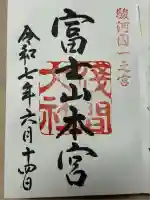 駿河國一之宮
富士山本宮
浅間大社
令和七年六月十四日